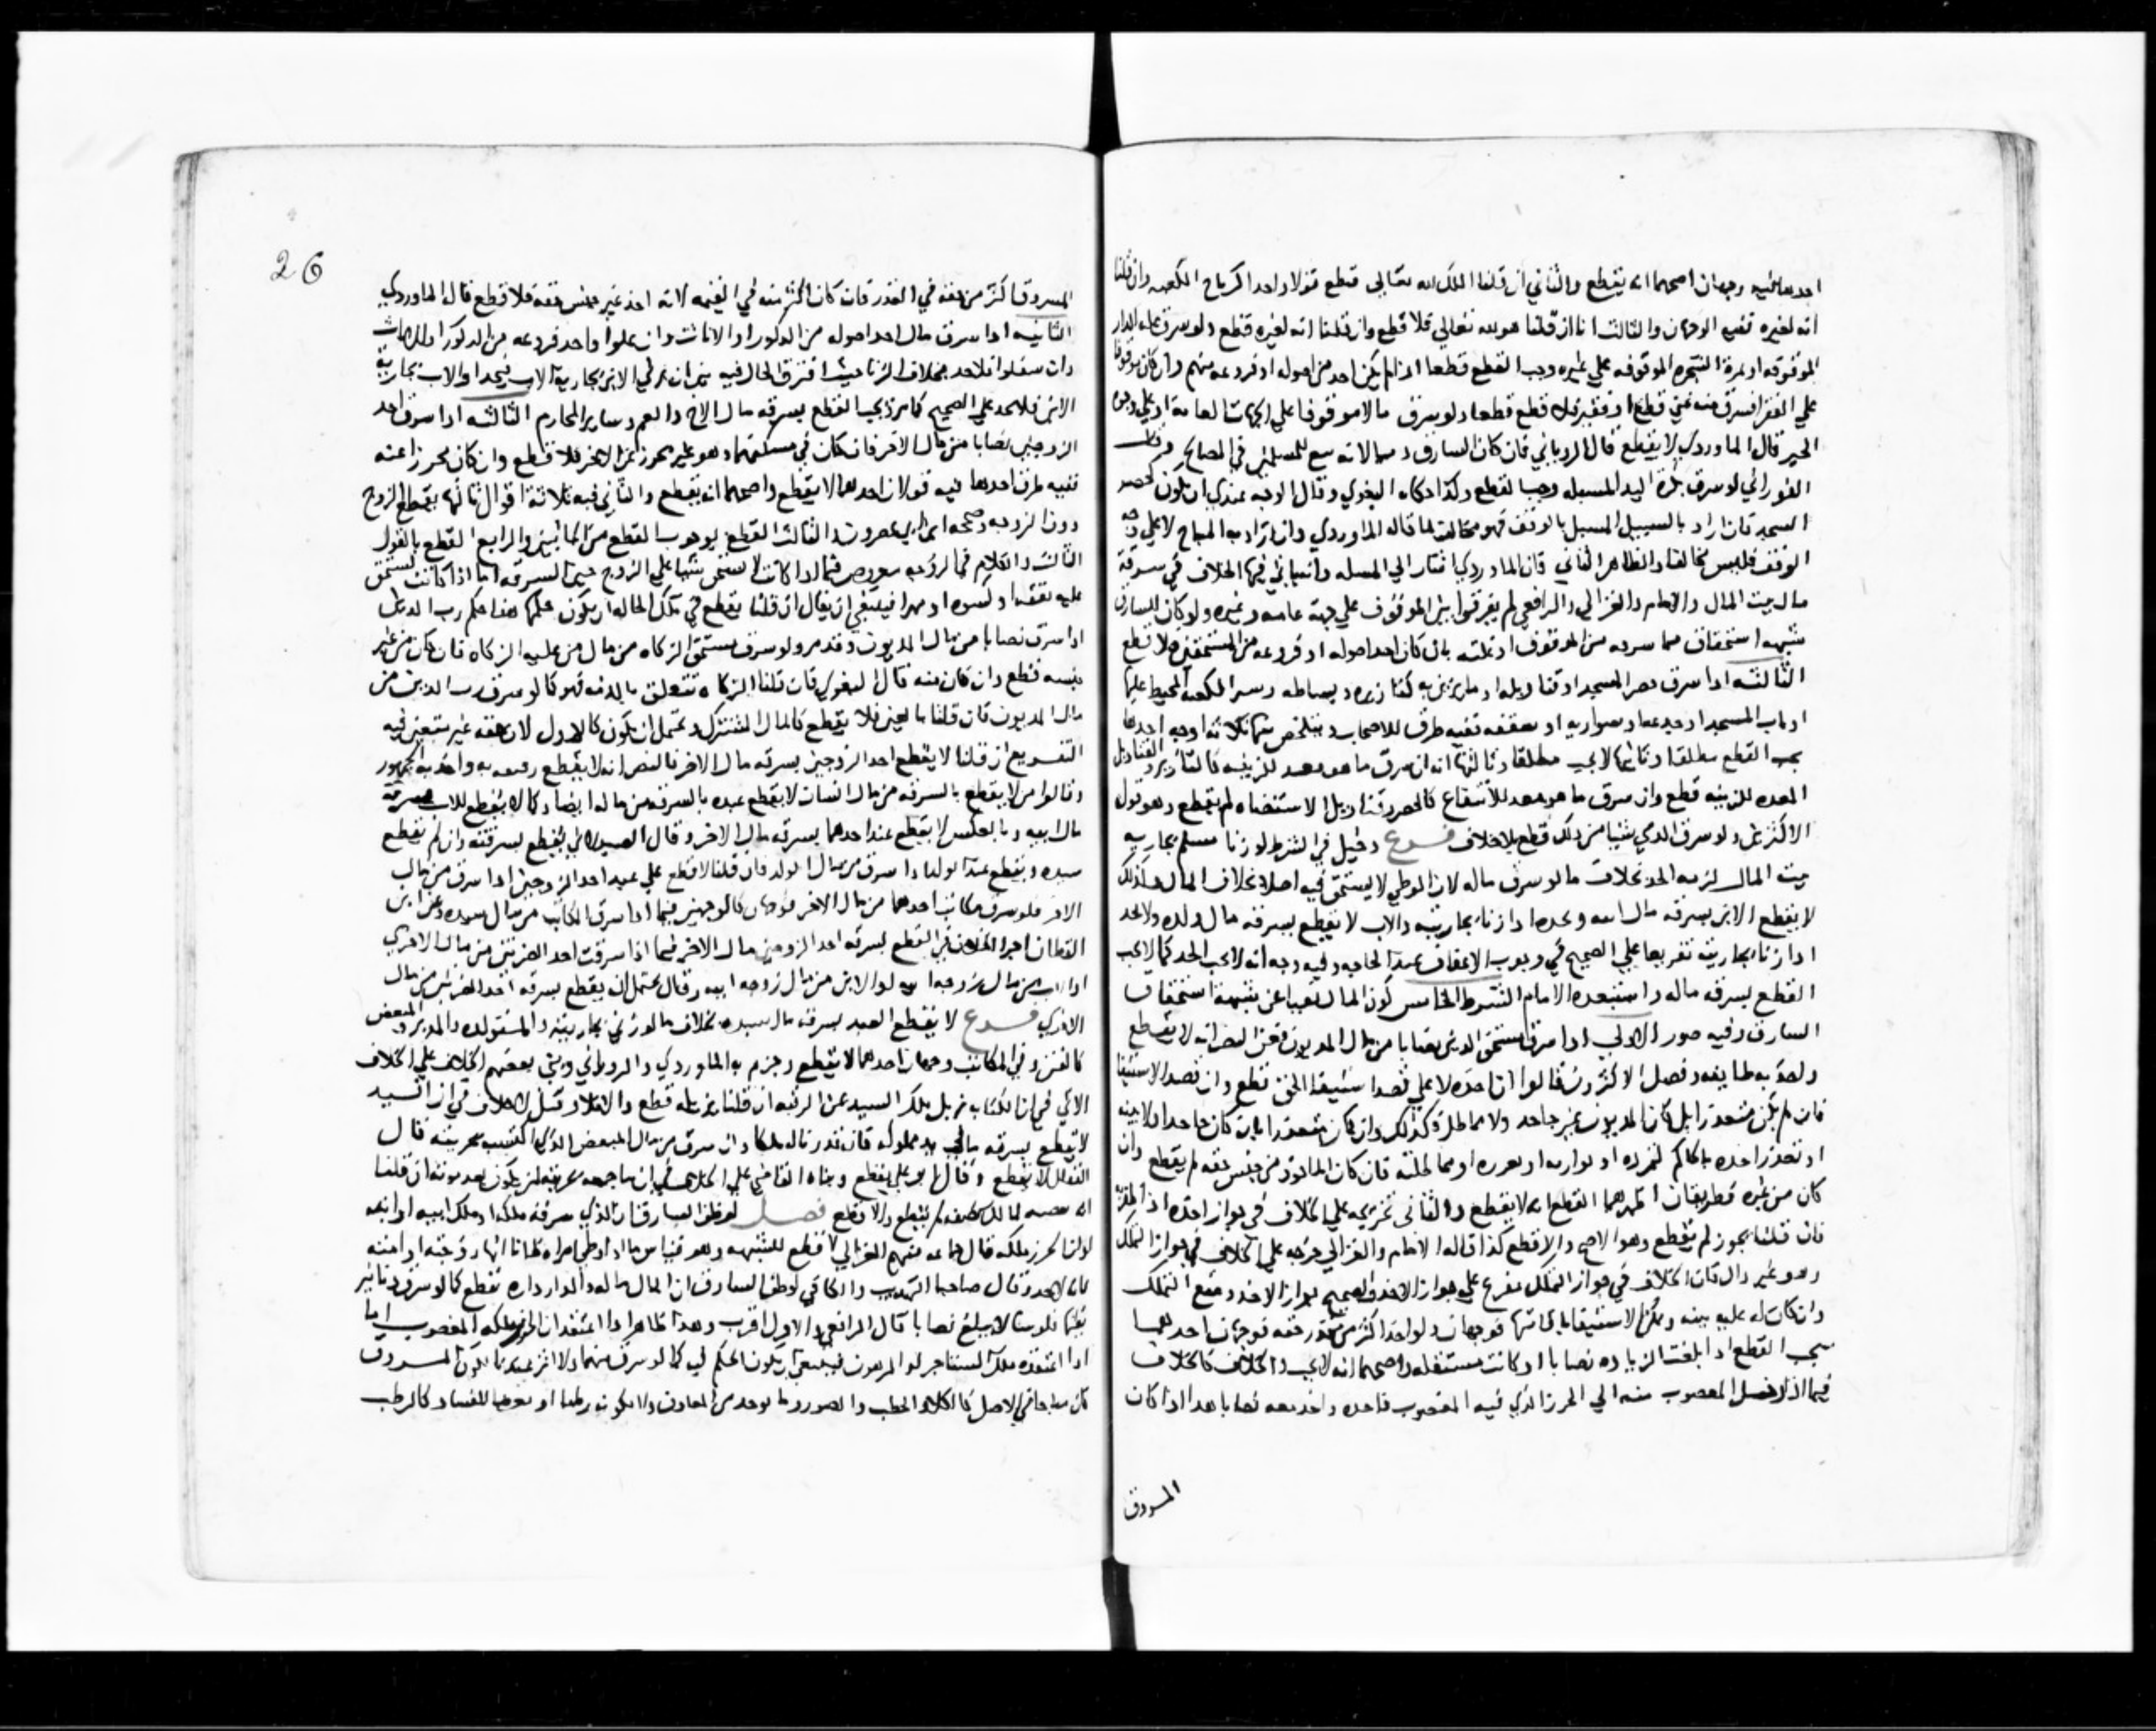 احدهما فيه وجهان اصحهما انه يقطع والثاني ان قلنا الملك لله تعالى قطع قولا واحدا كرتاج الكعبة وان قلنا
انه لغيره ففيه الوجهان والثالث انا ان قلنا هو لله تعالى فلا قطع وان قلنا انه لغيره قطع ولو سرق غلة الدار
الموقوفة او ثمرة الشجرة الموقوفة على غيره وجب القطع قطعا اذا لم يكن احد من اصوله او فروعه منهم وان كان موقوفا
على الفقرا فسرق منه غني قطع او فقير فلا قطع قطعا ولو سرق مالا موقوفا على الجهات العامة او على وجوه
الخير قال الماوردي لا يقطع قال الروياني فان كان السارق ذميا لانه تبع للمسلمين في المصالح وقال
الفوراني لو سرق بكرة البير المسبلة وجب القطع وكذا حكاه البغوي وقال الوجه عندي ان يكون كحصر
المسجد فان اراد بالسبيل المسبل بالوقف فهو مخالف لما قاله الماوردي وان اراد به المباح لا على وجه
الوقف فليس مخالفا والظاهر الثاني فان الماوردي اشار الى المسلة واتباني فيها الخلاف في سرقة
مال بيت المال والامام والغزالي والرافعي لم يفرقوا بين الموقوف على جهة عامة وغيره ولو كان للسارق
شبهة استحقاق مما سرقه من الموقوف او غلته بان كان احد اصوله او فروعه من المستحقين فلا قطع
الثالثة اذا سرق حصر المسجد او قناديله او ما يزين به كتازيره وبساطه وستر الكعبة المحيط عليها
او باب المسجد او جذعه او سواريه او سقفه ففيه طرق للاصحاب ويتلخص منها ثلاثة اوجه احدها
يجب القطع مطلقا وثانيها لا يجب مطلقا وثالثها انه ان سرق ما هو معد للزينة كالتازير والقناديل
المعدة للزينة قطع وان سرق ما هو معد للانتفاع كالحصر وقناديل الاستضاة لم يقطع وهو قول
الاكثرين ولو سرق الذمي شيا من ذلك قطع بلا خلاف فرع دخيل في الشرط لو زنا مسلم بجارية
بيت المال لزمه الحد بخلاف ما لو سرق ماله لان الوطي لا يستحق فيه اصلا بخلاف المال وكذلك
لا يقطع الابن بسرقة مال ابيه ويحد اذا زنا بجاريته والاب لا يقطع بسرقة مال ولده ولا يحد
اذا زنا بجاريته تفريعا على الصحيح في وجوب الاعفاف عند الحاجة وفيه وجه انه لا يجب الحد كما لا يجب
القطع بسرقة ماله واستبعده الامام الشرط الخامس كون المال نقيا عن شبهة استحقاق
السارق وفيه صور الاولى اذا سرق مستحق الدين نصابا من مال المديون فعن النص انه لا يقطع
واخذ به طايفة وفصل الاكثرون فقالوا ان اخذه لا على قصد استيفا الحق قطع وان قصد الاستيفا
فان لم يكن متعذرا بل كان المديون غير جاحد ولا مماطل فكذلك وان كان متعذرا بان كان جاحدا ولا بينة
او تعذر اخذه بالحاكم لتمرده او تواريه او تعززه او مماطلته فان كان الماخوذ من جنس حقه لم يقطع وان
كان من غيره فطريقان اظهرهما القطع انه لا يقطع والثاني تخريجه على الخلاف في جواز اخذه
فان قلنا يجوز لم يقطع وهو الاصح والا قطع كذا قاله الامام والغزالي خرجه على الخلاف في جواز التملك
وهو غير دال فان الخلاف في جواز التملك مفرع على جواز الاخذ والصحيح جواز الاخذ ومنع التملك
وان كانت له عليه بينة ويمكن الاستيفا بالحاكم فوجهان ولو اخذ اكثر من قدر حقه فوجهان احدهما
يجب القطع اذا بلغت الزيادة نصابا او كانت مستقلة واصحهما انه لا يجب والخلاف كالخلاف
فيما اذا دخل المغصوب منه الى الحرز الذي فيه المغصوب فاخذه واخذ معه نصابا هذا اذا كان
المسروق
26
المسروق اكثر من حقه في القدر فان كان اكثر منه في القيمة لانه اخذ غير جنس حقه فلا قطع قال الماوردي
الثانية اذا سرق مال احد اصوله من الذكور او الاناث وان علوا واحد فروعه من الذكور او الاناث
وان سفلوا فلا حد بخلاف الزنا حيث افترق الحال فيه بين ان يطي الابن بجارية الاب فيحد او الاب بجارية
الابن فلا حد على الصحيح كما مر ويجب القطع بسرقة مال الاخ والعم وساير المحارم الثالثة اذا سرق احد
الزوجين نصابا من مال الاخر فان كان في مسكنهما وهو غير محرز عن الاخر فلا قطع وان كان محرزا عنه
ففيه طرق احدها فيه قولان احدهما لا يقطع واصحهما انه يقطع والثاني فيه ثلاثة اقوال ثالثها يقطع الزوج
دون الزوجة وصححه ابن ابي عصرون والثالث القطع بوجوب القطع من الجانبين والرابع القطع بالقول
الثالث والكلام في الزوجة مفروض فيما اذا كانت لا تستحق شيا على الزوج حين السرقة اما اذا كانت تستحق
عليه نفقة او كسوة او مهرا فينبغي ان يقال ان قلنا يقطع في تلك الحالة ان يكون حكمها هنا حكم رب الدين
اذا سرق نصابا من مال المديون وقد مر ولو سرق مستحق الزكاه من مال من عليه الزكاه فان كان من غير
جنسه قطع وان كان منه قال البغوي فان قلنا الزكاة تتعلق بالذمة فهو كما لو سرق رب الدين من
مال المديون فان قلنا بالعين فلا يقطع كالمال المشترك ويحتمل ان يكون كالاول لان حقه غير متعين فيه
التفريع ان قلنا لا يقطع احد الزوجين بسرقة مال الاخر فالنص انه لا يقطع رقيقه به واخذ به الجمهور
وقالوا من لا يقطع بالسرقة من مال انسان لا يقطع عبده بالسرقة من ماله ايضا وكما لا يقطع للاب بسرقة
مال ابيه وبالعكس لا يقطع عند احدهما بسرقة مال الاخر وقال الصيدلاني يقطع بسرقته وان لم يقطع
سيده ويقطع عبد الولد اذا سرق من مال الولد فان قلنا لا قطع على عبد احد الزوجين اذا سرق من مال
الاخر فلو سرق مكاتب احدهما من مال الاخر فوجهان كالوجهين فيما اذا سرق المكاتب من مال سيده وعن ابن
القطان اجرا الخلاف في القطع بسرقة احد الزوجين مال الاخر فيما اذا سرقت احد الضرتين من مال الاخرى
او الاب من مال زوجة ابنه او الابن من مال زوجة ابيه وقال يحتمل ان يقطع بسرقة احد الضرتين من مال
الاخرى فرع لا يقطع العبد بسرقة مال سيده بخلاف ما لو زنى بجاريته والمستولدة والمدبر والمبعض
كالقن وفي المكاتب وجهان احدهما لا يقطع وجزم به الماوردي والروياني وبنى بعضهم الخلاف على الخلاف
الاتي في ان الكتابة تزيل ملك السيد عن الرقبة ان قلنا تزيله قطع والا فلا وقيل لا خلاف في ان السيد
لا يقطع بسرقة ما في يد مملوكه فان قدر ناله ملكا وان سرق من مال المبعض الذي اكتسبه بحريته قال
القفال لا يقطع وقال ابو علي يقطع وبناه القاضي على
لمالك نصفه لم يقطع والا قطع فصل لو ظن السارق ان الذي سرقه ملكه او ملك ابيه او ابنه
او ان الحرز ملكه قال جماعة منهم الغزالي لا قطع للشبهه وهو قياس ما اذا وطي امراة ظانا انها زوجته او امته
فانه لا يحد وقال صاحبا التهذيب والكافي لو ظن السارق ان المال ماله والدار داره يقطع كما لو سرق دنانير
يظنها فلوسا لا يبلغ نصابا قال الرافعي والاول اقرب وهذا ظاهر اذا اعتقد ان الحرز ملكه المغصوب اما
اذا اعتقده ملك المستاجر او المرهون فينبغي ان يكون الحكم فيه كما لو سرق منهما ولا اثر عندنا لكون المسروق
كان مباحا في الاصل كالكلا والحطب والصيود وما يوجد من المعادن ولا لكونه رطبا او معرضا للفساد كالرطب